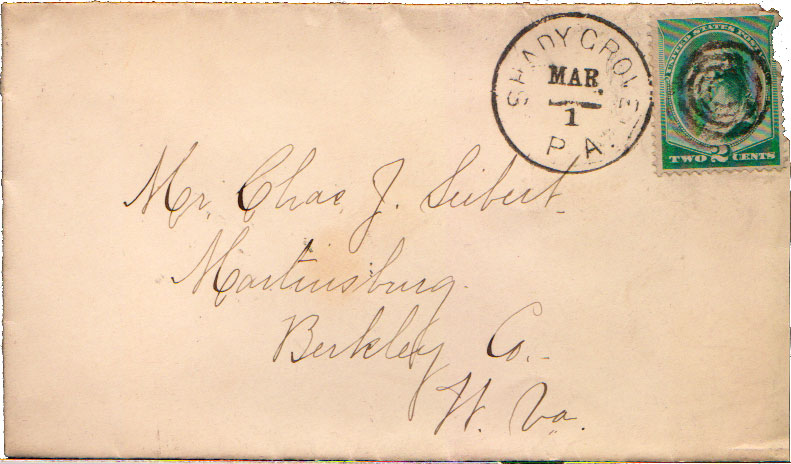 SHADY GROVE
MAR
1
PA.
UNITED STATES POST
TWO 2 CENTS
Mr. Chas. J. Seibert
Martinsburg
Berkley Co.
W. Va.